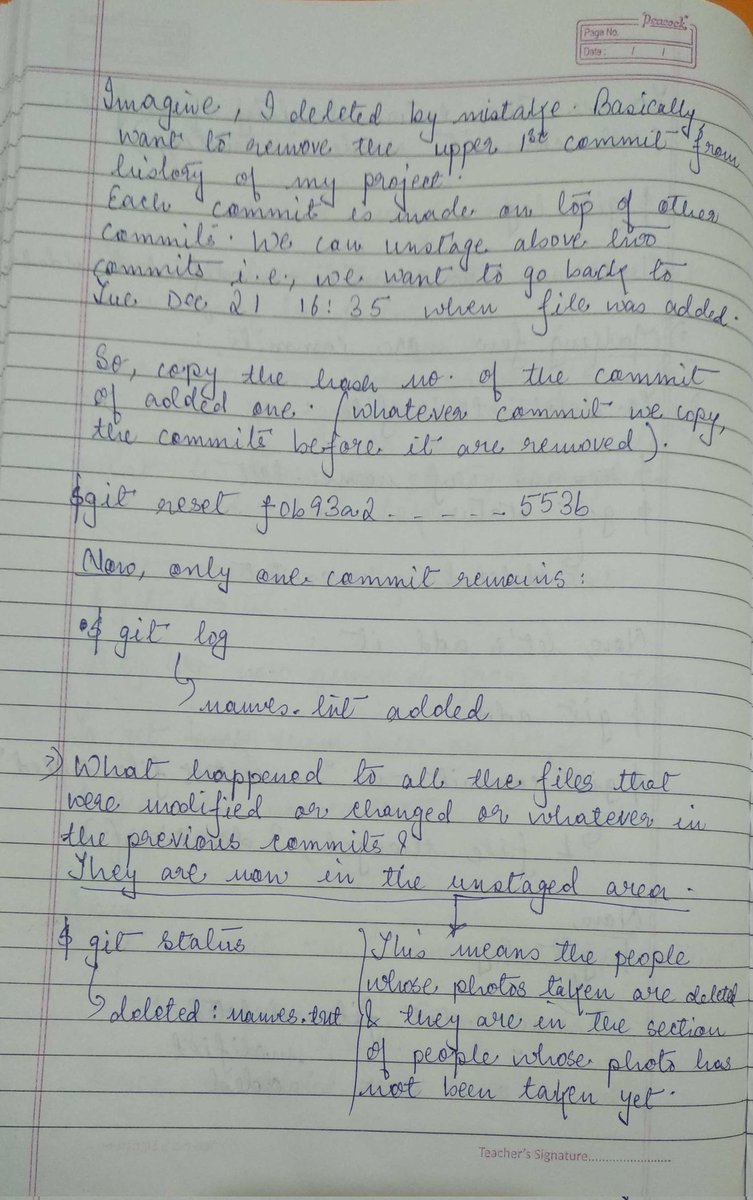 Peacock
Page No.
Date: / /
Imagine, I deleted by mistake. Basically, I
want to remove the upper 1st commit from
history of my project.
Each commit is made on top of other
commits. We can unstage above two
commits i.e., we want to go back to
Tue Dec 21 16:35 when file was added.
So, copy the hash no. of the commit
of added one. (whatever commit we copy,
the commits before it are removed).
$ git reset f0b93a2------553b
Now, only one commit remains:
$ git log
↳ names.txt added
⇒) What happened to all the files that
were modified or changed or whatever in
the previous commits?
They are now in the unstaged area.
$ git status
↳ deleted: names.txt
This means the people
whose photos taken are deleted
& they are in the section
of people whose photo has
not been taken yet.
Teacher's Signature....................